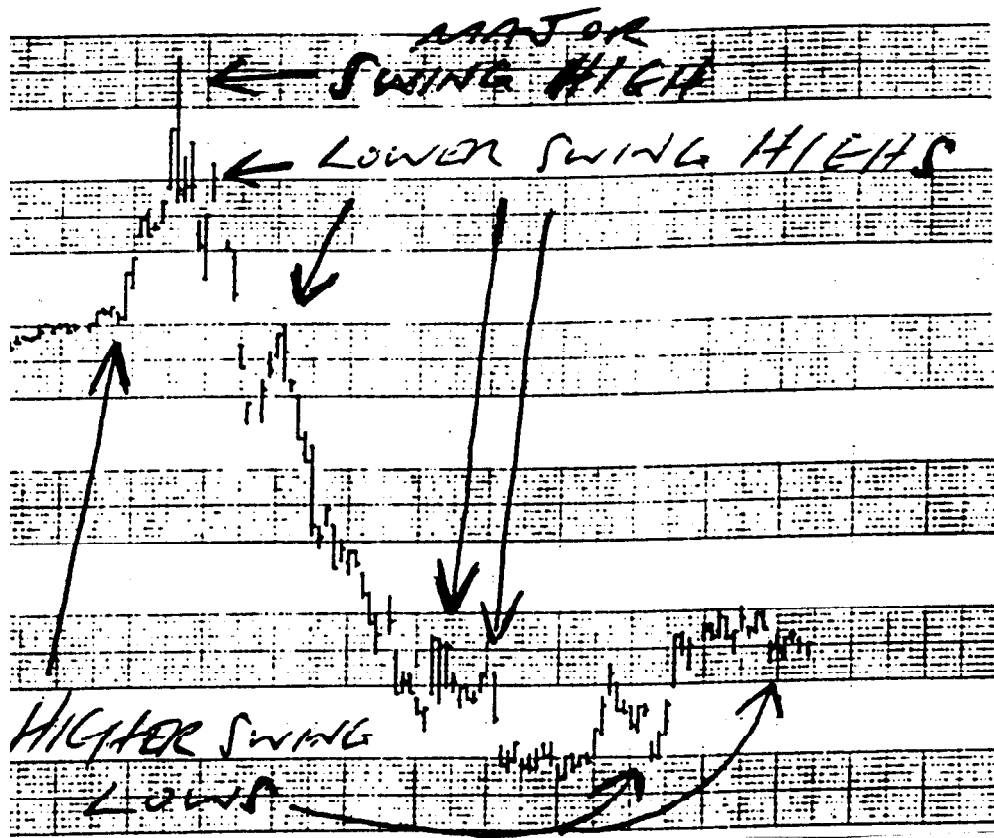 MAJOR
SWING HIGH
LOWER SWING HIGHS
HIGHER SWING
LOWS